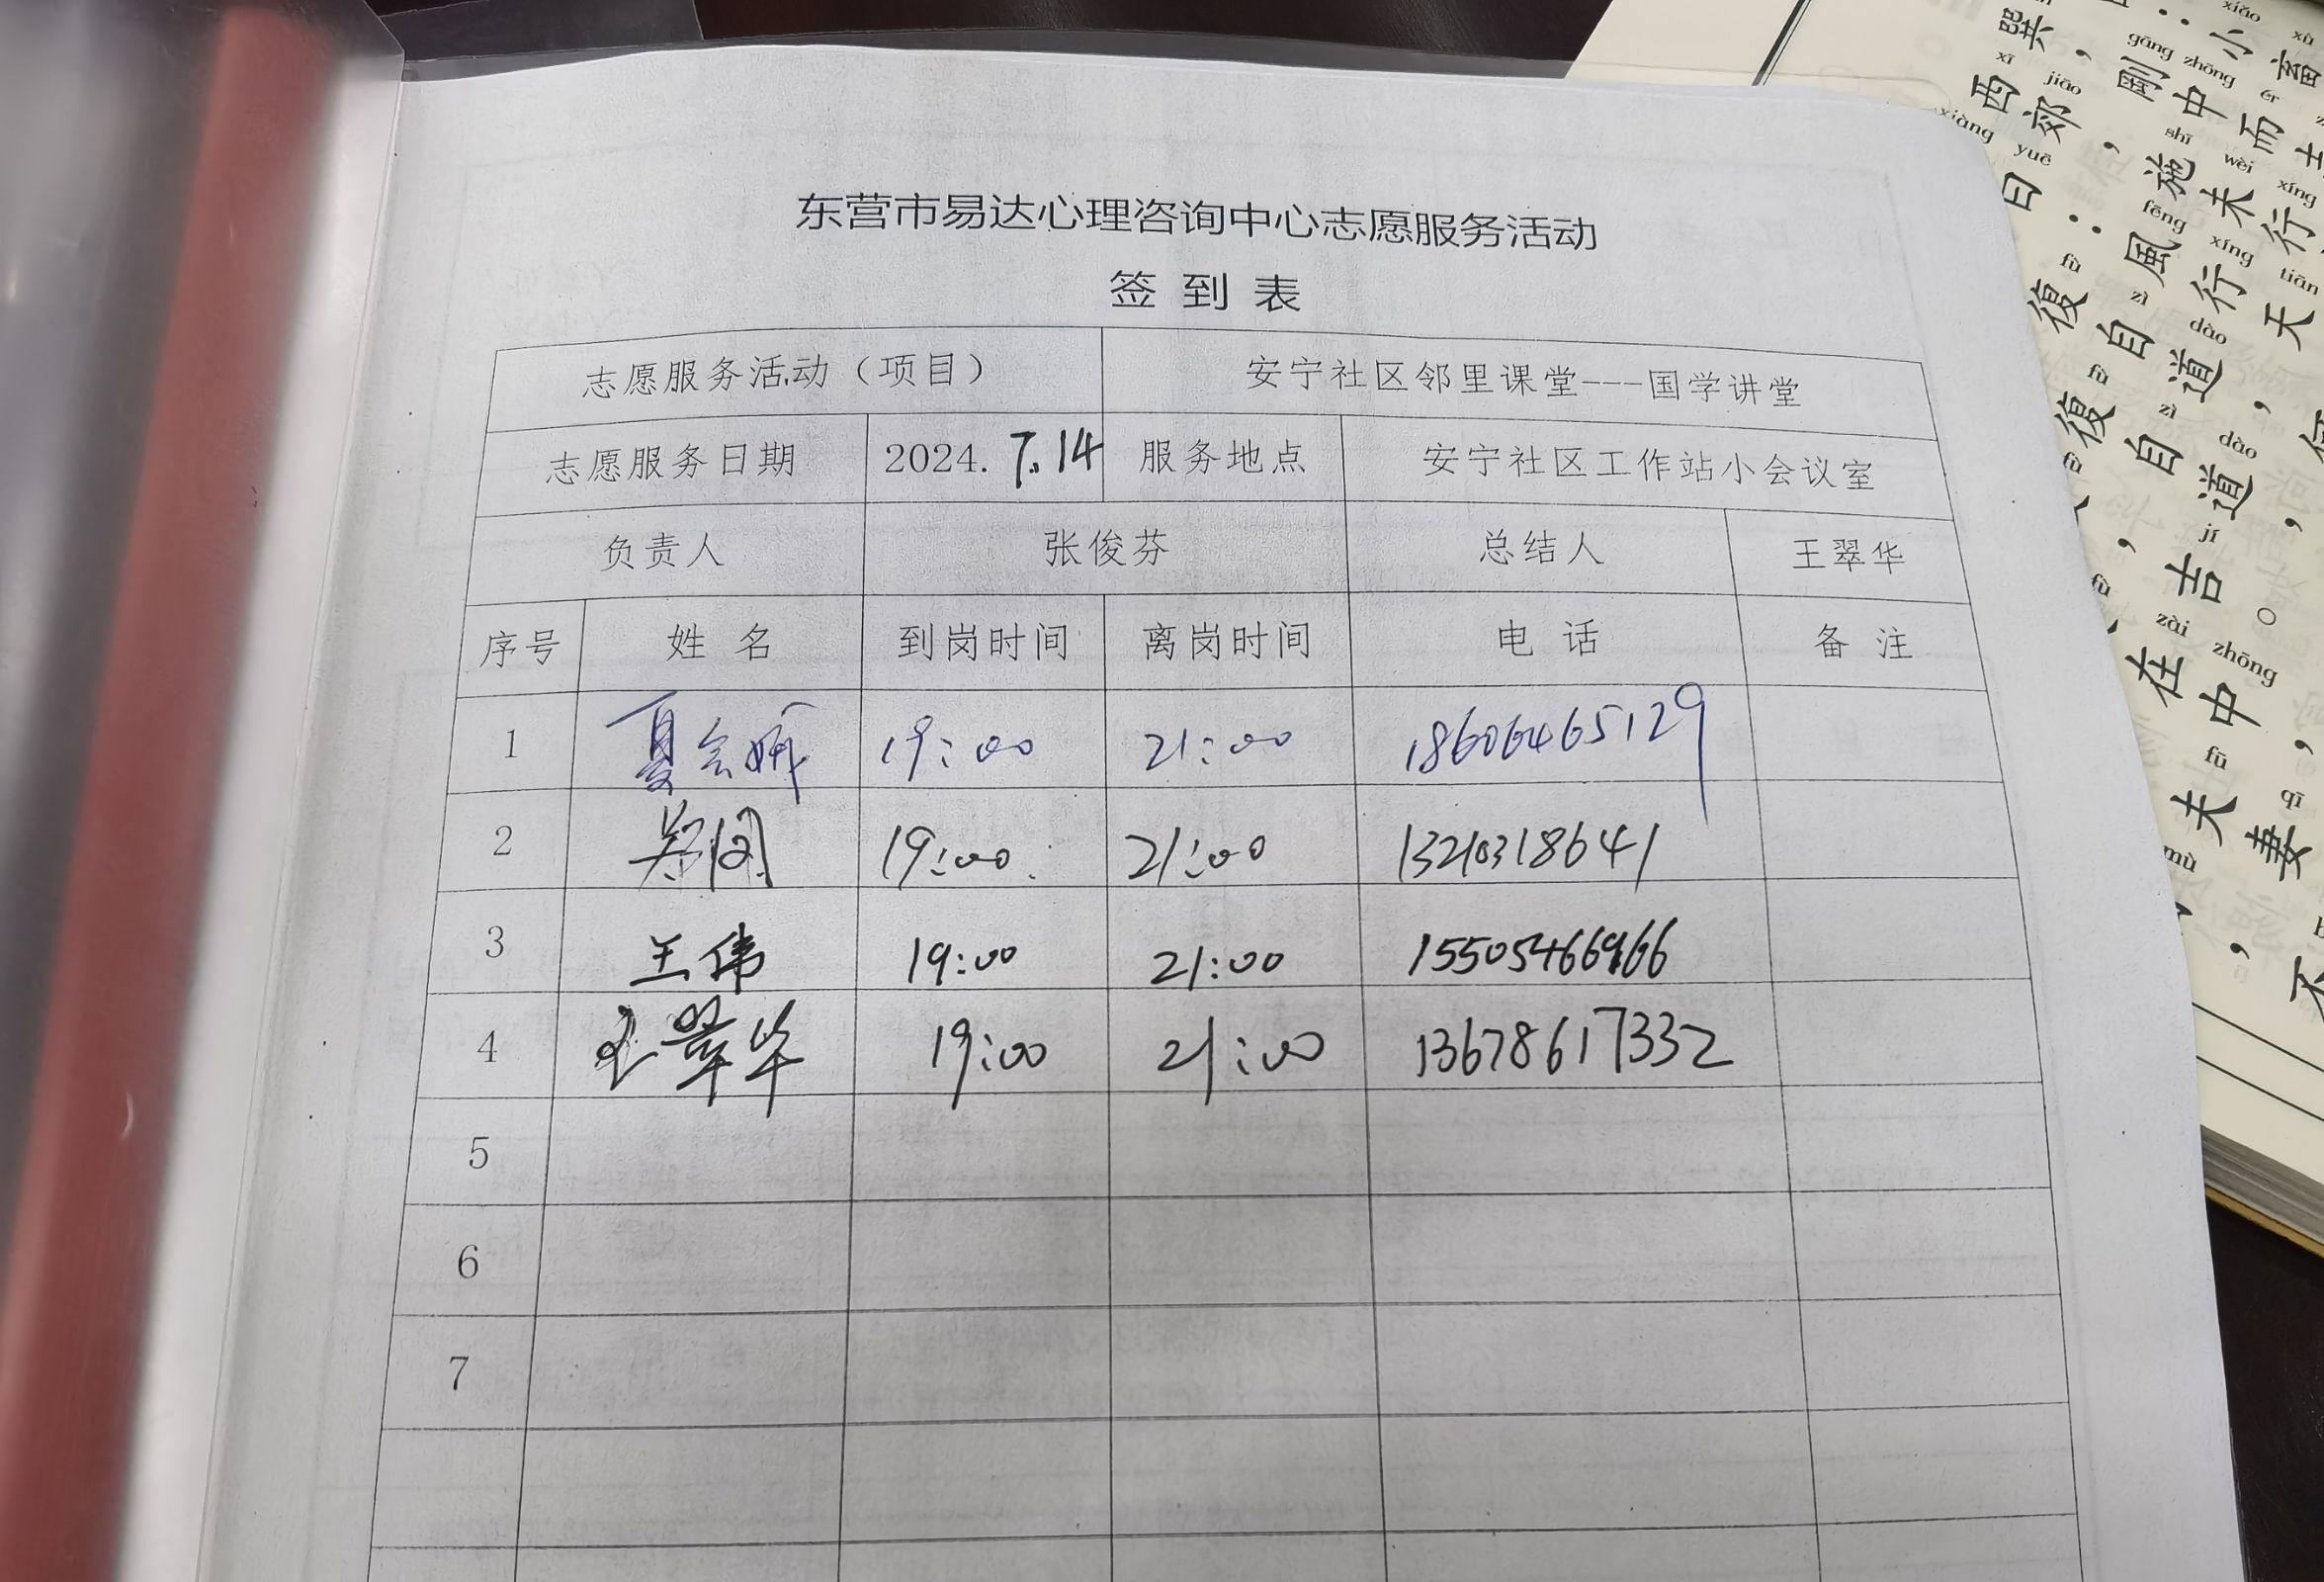 东营市易达心理咨询中心志愿服务活动
签到表
志愿服务活动（项目） 安宁社区邻里课堂---国学讲堂
志愿服务日期 2024.7.14 服务地点 安宁社区工作站小会议室
负责人 张俊芬 总结人 王翠华
序号 姓名 到岗时间 离岗时间 电话 备注
1 夏会 19:00 21:00 18606465129
2 郑 19:00 21:00 13210318641
3 王伟 19:00 21:00
4 王翠华 19:00 21:00 13678617332
5
6
7
小畜
xiǎo xù
巽，剛中而
gāng zhōng ér
西郊，施未行
xī jiāo shī wèi xíng
曰：風行天
xiàng yuē fēng xíng tiān
復自道，
fù zì dào
復自道，
fù zì dào
吉。
jí
在中，
zài zhōng
夫妻
fū qī
不